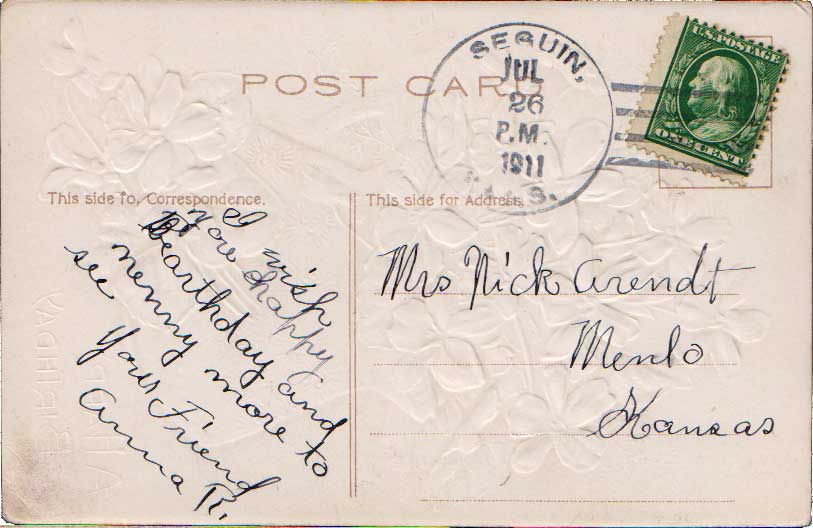 POST CARD
SEGUIN,
JUL
26
P.M.
1911
KANS.
U.S. POSTAGE
ONE CENT
This side to, Correspondence.
This side for Address.
I wish
you happy
Bearthday and
nenny more to
see
Your Friend
Anna R.
Mrs Nick Arendt
Menlo
Kansas
BIRTHDAY